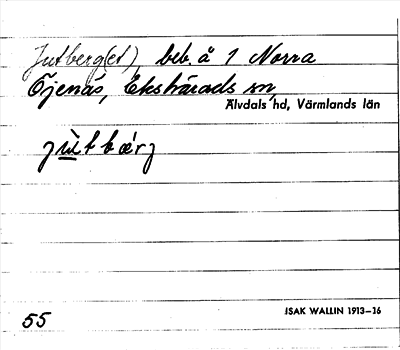 Jutberg(et), beb. å 1 Norra
Öjenäs, Ekshärads sn,
Älvdals hd, Värmlands län
jùtbærj
55
ISAK WALLIN 1913–16